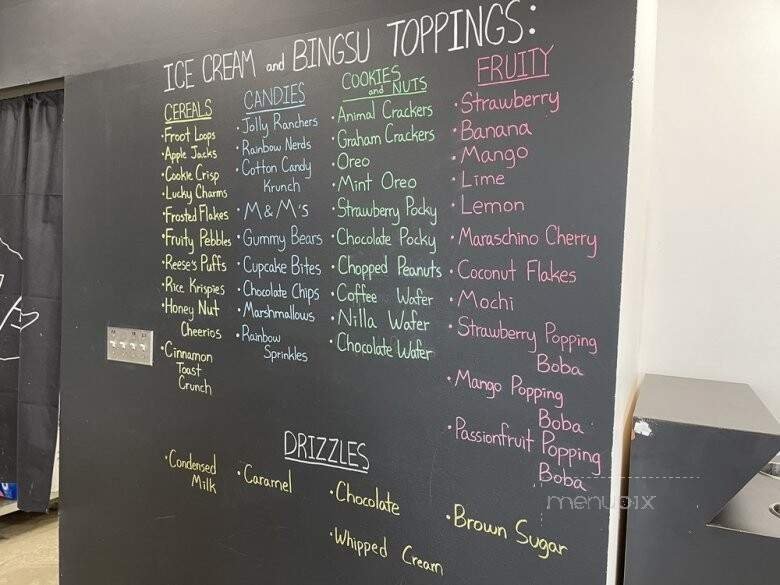 ICE CREAM and BINGSU TOPPINGS:
CEREALS
• Froot Loops
• Apple Jacks
• Cookie Crisp
• Lucky Charms
• Frosted Flakes
• Fruity Pebbles
• Reese's Puffs
• Rice Krispies
• Honey Nut
Cheerios
• Cinnamon
Toast
Crunch
CANDIES
• Jolly Ranchers
• Rainbow Nerds
• Cotton Candy
Krunch
• M & M's
• Gummy Bears
• Cupcake Bites
• Chocolate Chips
• Marshmallows
• Rainbow
Sprinkles
COOKIES
and NUTS
• Animal Crackers
• Graham Crackers
• Oreo
• Mint Oreo
• Strawberry Pocky
• Chocolate Pocky
• Chopped Peanuts
• Coffee Wafer
• Nilla Wafer
• Chocolate Wafer
FRUITY
• Strawberry
• Banana
• Mango
• Lime
• Lemon
• Maraschino Cherry
• Coconut Flakes
• Mochi
• Strawberry Popping
Boba
• Mango Popping
Boba
• Passionfruit Popping
Boba
DRIZZLES
• Condensed
Milk
• Caramel
• Chocolate
• Whipped Cream
• Brown Sugar
menupix